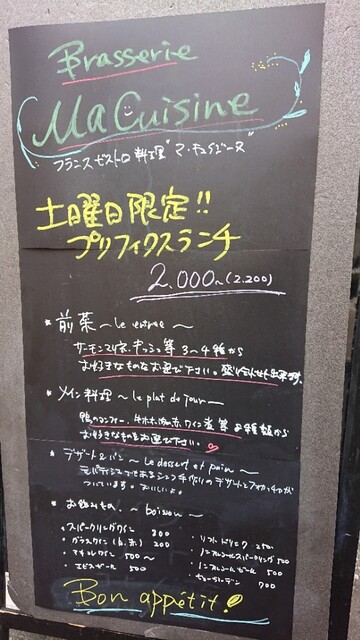 Brasserie
Ma Cuisine
フランスビストロ料理"マ・キュイジーヌ"
土曜日限定!!
プリフィクスランチ
2,000~(2,200)
* 前菜 ~ le entree ~
サーモンマリネ、キッシュ等 3~4種から
お好きなものをお選び下さい。
* メイン料理 ~ le plat de jour ~
鴨のコンフィー、牛ホホ肉の赤ワイン煮 等 4種類から
お好きなものをお選び下さい。
* デザート&パン ~ Le dessert et pain ~
元パティシエであるシェフ手作りのデザートとフォカッチャが
ついています。おいしいよ
* お飲みもの ~ boisson ~
・スパークリングワイン 300
・グラスワイン (白、赤) 200
500~
・エビスビール 500
・ソフトドリンク 250
・ノンアルコールスパークリング 500
・ノンアルコールビール 500
700
Bon appétit!